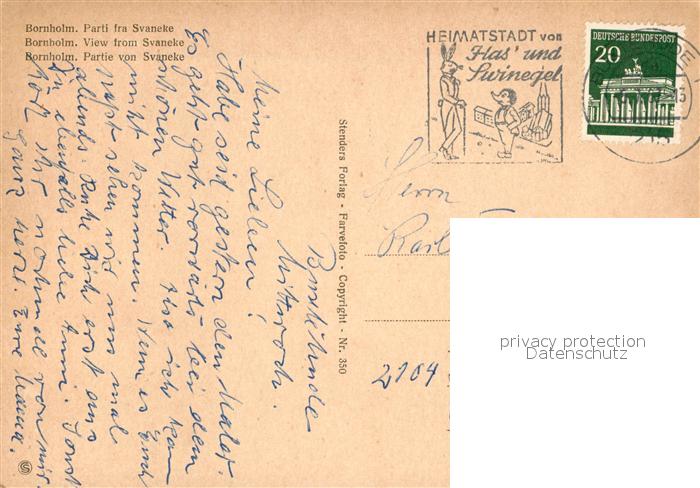 Bornholm. Parti fra Svaneke
Bornholm. View from Svaneke
Bornholm. Partie von Svaneke
HEIMATSTADT von
Has' und
Swinegel
DEUTSCHE BUNDESPOST
20
Stenders Forlag - Farvefoto - Copyright - Nr. 350
Buxtehude
Mittwoch.
Meine Lieben!
Habe seit gestern den Maler.
Es geht gut vorwärts bei dem
schönen Wetter. Also ich kann
nicht kommen. Wenn es Euch
paßt sehen wir uns mal
abends. Ruhe Dich erst aus
Du ebenfalls liebe Anni. Sonst
hört Ihr nochmal von mir.
Ganz herzl. Eure Mama.
Herrn
Karl
2104
privacy protection
Datenschutz